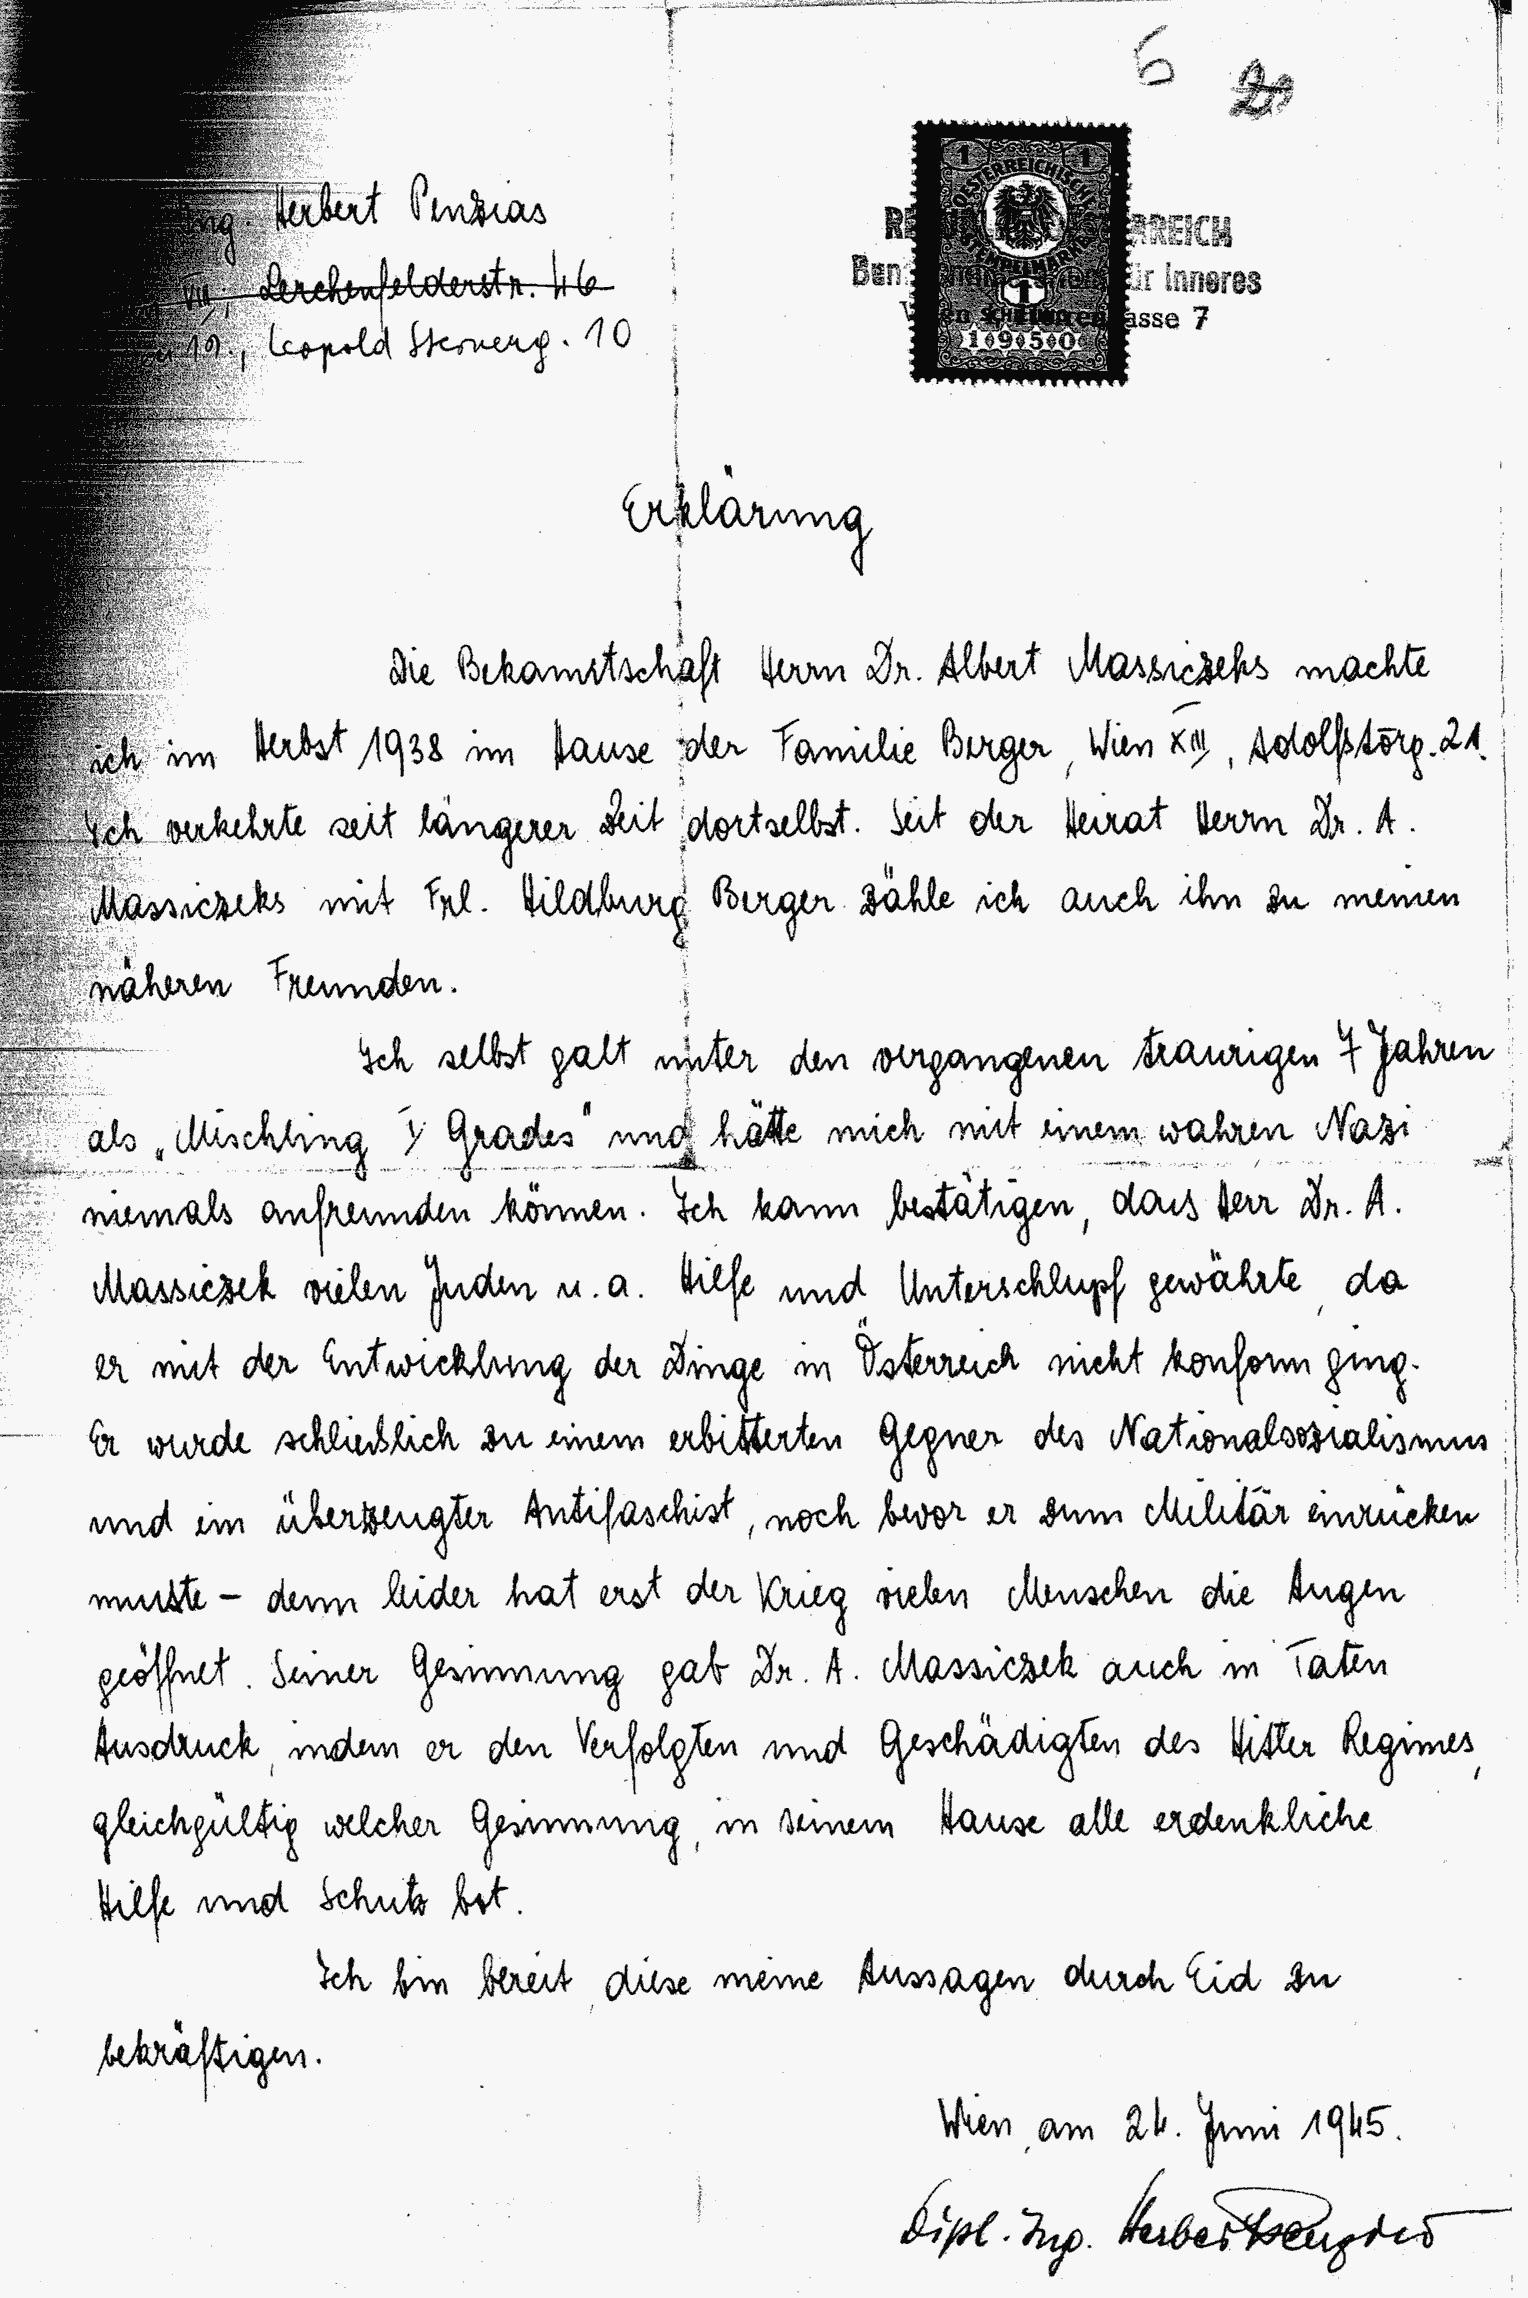 5
Ing. Herbert Penzias
VIII, Lerchenfelderstr. 46
19., Leopold Steinerg. 10
1 1
OESTERREICHISCHE
STEMPELMARKE
1
1950
RREICH
für Inneres
asse 7
Erklärung
Die Bekanntschaft Herrn Dr. Albert Massiczeks machte
ich im Herbst 1938 im Hause der Familie Berger, Wien XIII, Adolfstorg. 21.
Ich verkehrte seit längerer Zeit dortselbst. Seit der Heirat Herrn Dr. A.
Massiczeks mit Frl. Hildburg Berger zähle ich auch ihn zu meinen
näheren Freunden.
Ich selbst galt unter den vergangenen traurigen 7 Jahren
als „Mischling I Grades" und hätte mich mit einem wahren Nazi
niemals anfreunden können. Ich kann bestätigen, dass Herr Dr. A.
Massiczek vielen Juden u. a. Hilfe und Unterschlupf gewährte, da
er mit der Entwicklung der Dinge in Österreich nicht konform ging.
Er wurde schließlich zu einem erbitterten Gegner des Nationalsozialismus
und ein überzeugter Antifaschist, noch bevor er zum Militär einrücken
mußte – denn leider hat erst der Krieg vielen Menschen die Augen
geöffnet. Seiner Gesinnung gab Dr. A. Massiczek auch in Taten
Ausdruck, indem er den Verfolgten und Geschädigten des Hitler Regimes,
gleichgültig welcher Gesinnung, in seinem Hause alle erdenkliche
Hilfe und Schutz bot.
Ich bin bereit, diese meine Aussagen durch Eid zu
bekräftigen.
Wien, am 24. Juni 1945.
Dipl. Ing. Herbert Penzias